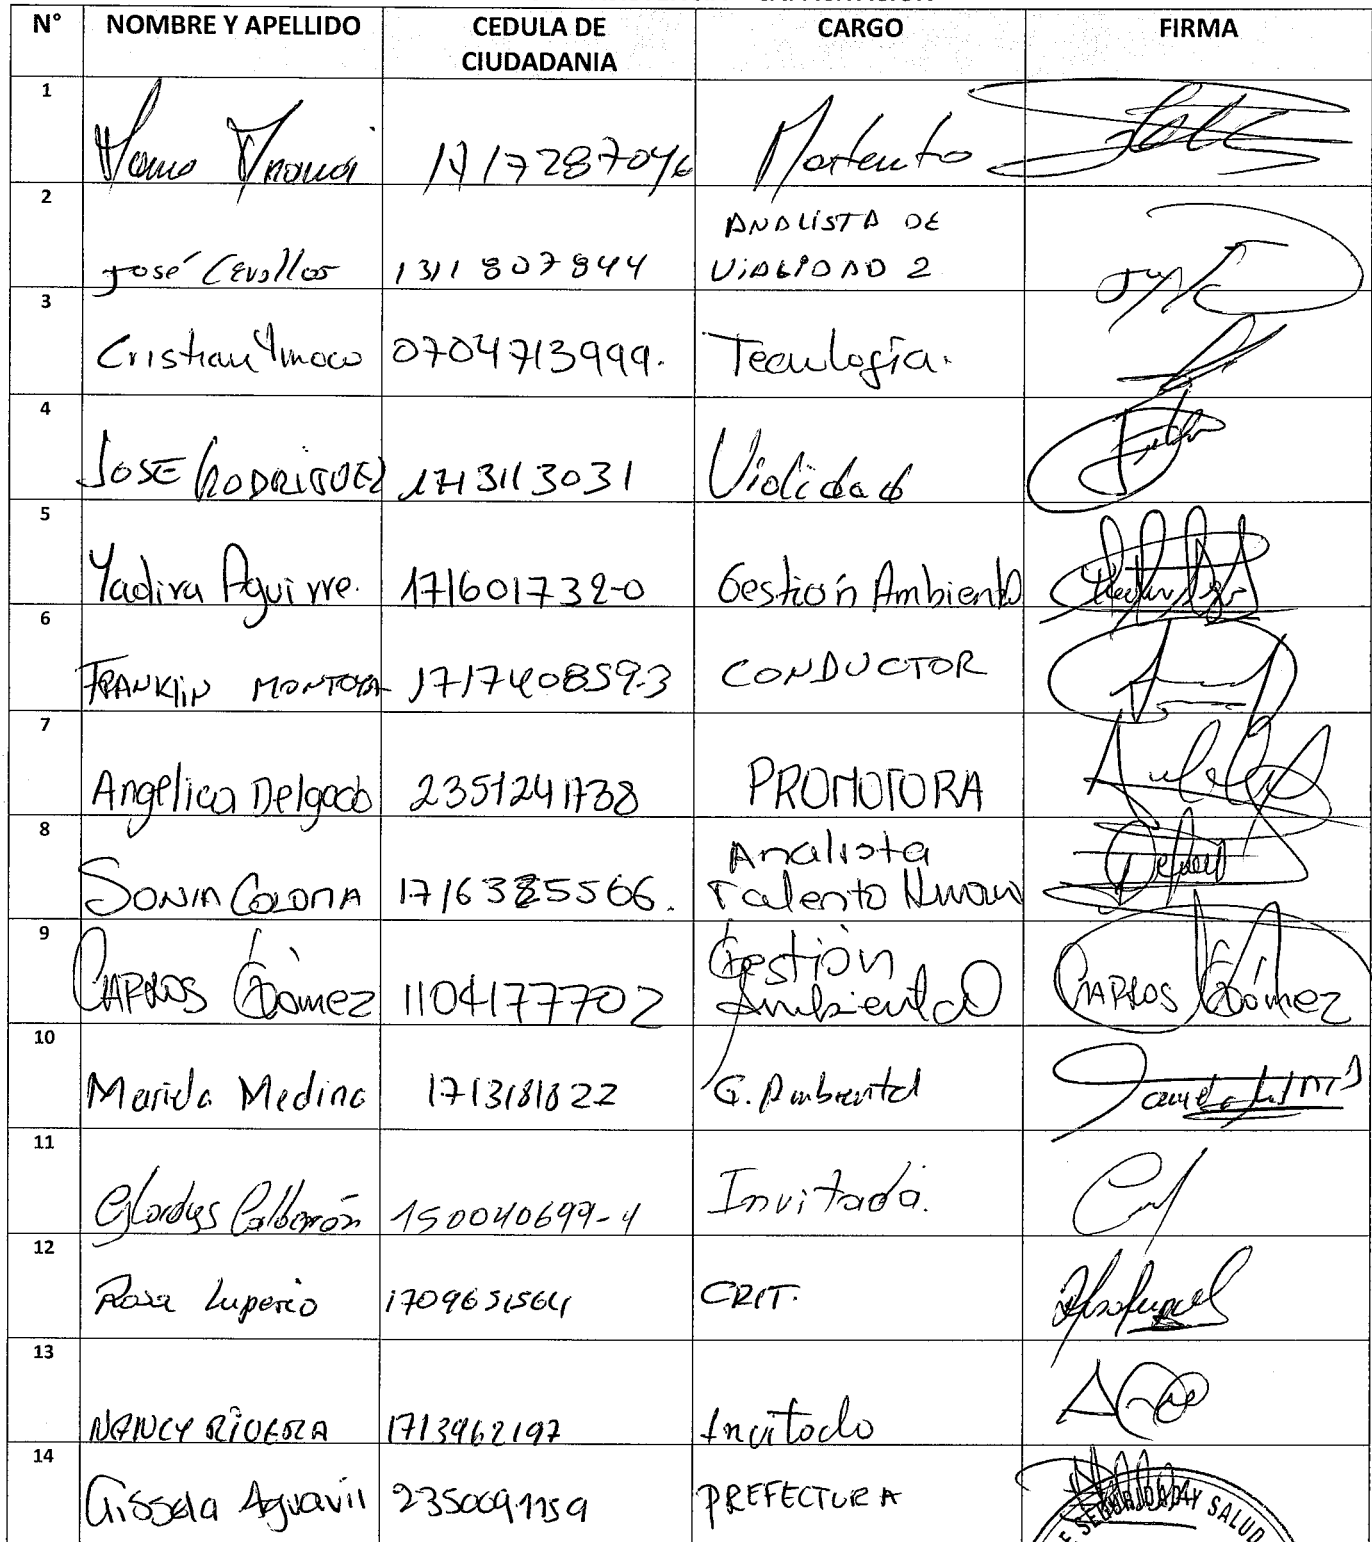 N° NOMBRE Y APELLIDO CEDULA DE CIUDADANIA CARGO FIRMA
1
2 José Cevallos 1311807844 ANALISTA DE VIALIDAD 2
3 Cristian 0704713999. Tecnlogía.
4 JOSE RODRIGUEZ 1713113031 Vialidad
5 Yadira Aguirre. 171601732-0 Gestión Ambiental
6 FRANKLIN MONTOYA 171740859-3 CONDUCTOR
7 Angélica Delgado 2351241738 PROMOTORA
8 SONIA COLOMA 1716385566. Analista Talento Humano
9 CARLOS Gómez 1104177702 Gestión Ambiental CARLOS Gómez
10 Mariela Medina 1713181822 G. Ambiental
11 Gladys Calderón 150040699-4 Invitada.
12 Rosa Luperio 1709651564 CRIT.
13 NANCY RIVERA 1713962197 Invitado
14 Gissela Aguavil 2350091159 PREFECTURA
E SEGURIDAD Y SALUD